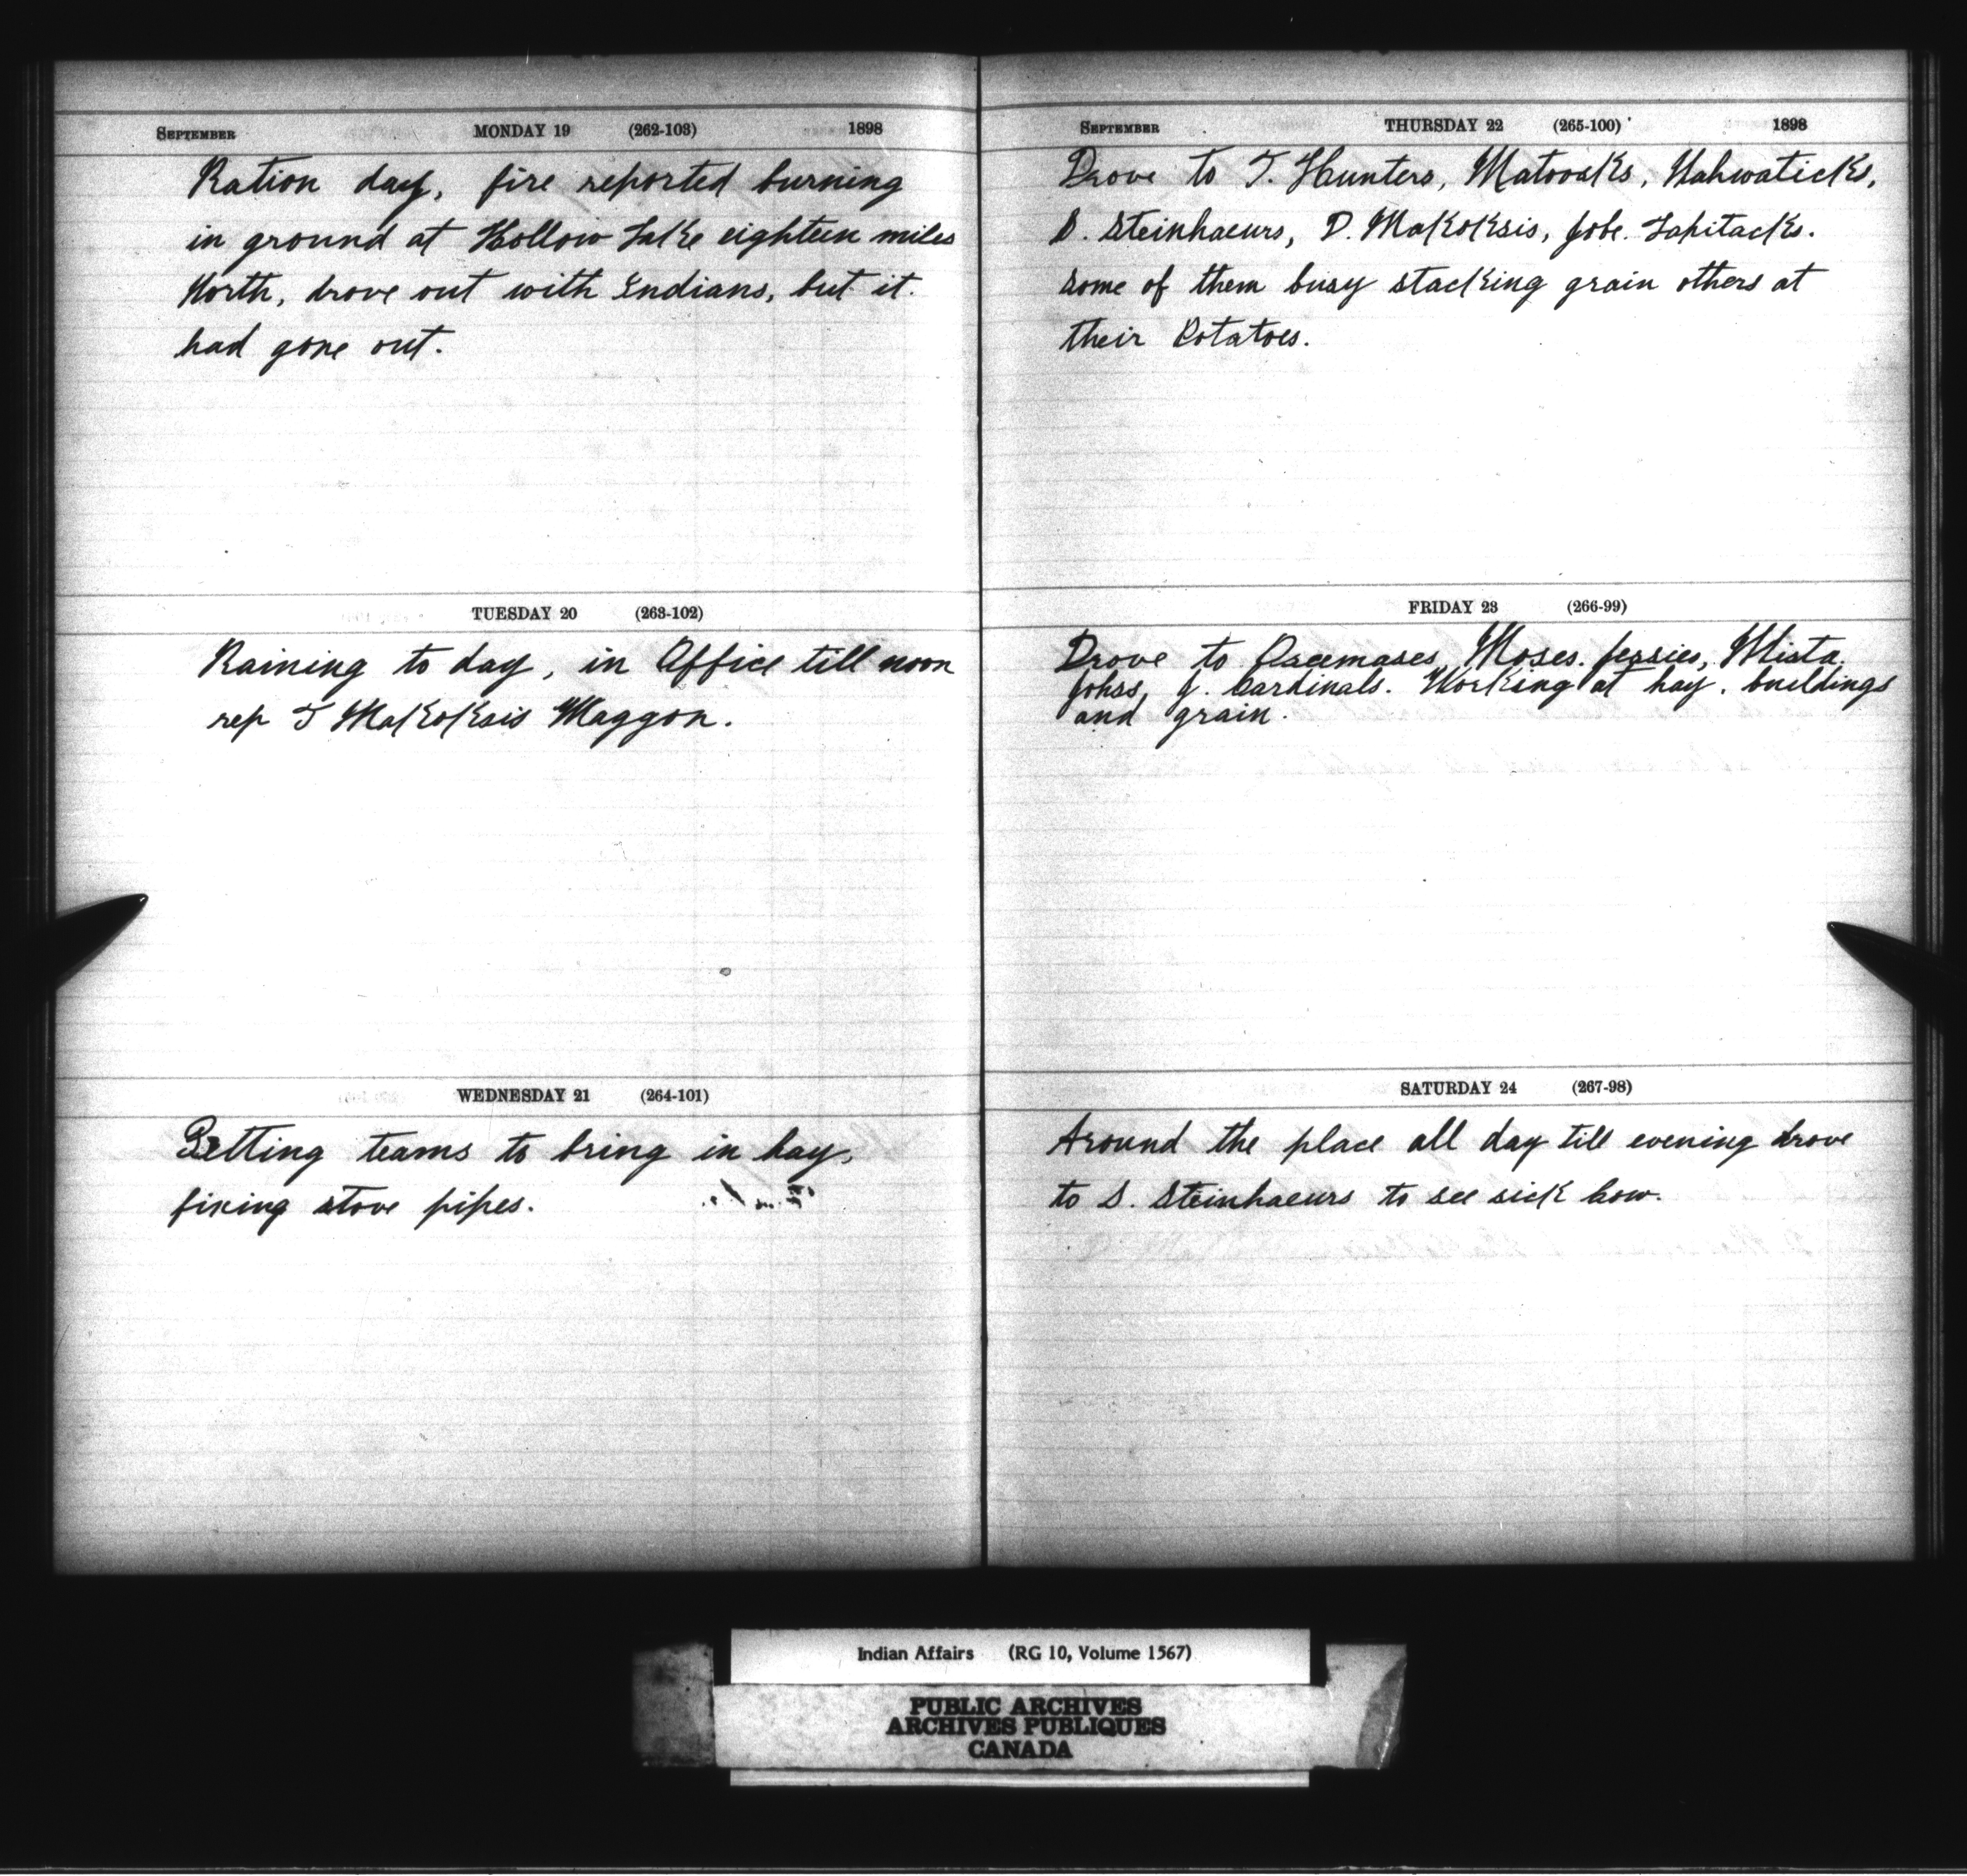 SEPTEMBER MONDAY 19 (262-103) 1898
Ration day, fire reported burning
in ground at Hollow Lake eighteen miles
North, drove out with Indians, but it.
had gone out.
TUESDAY 20 (263-102)
Raining to day, in Office till noon
rep T Makoksis Waggon.
WEDNESDAY 21 (264-101)
Getting teams to bring in hay,
fixing stove pipes.
SEPTEMBER THURSDAY 22 (265-100) 1898
Drove to T. Hunters, Matooaks, Nahwaticks,
S. Steinhaeurs, D. Makoksis, Jobe. Lapitacks.
Some of them busy stacking grain others at
their Potatoes.
FRIDAY 23 (266-99)
Drove to Moses. Jessies, Mista.
J. Cardinals. Working at hay. buildings
and grain.
SATURDAY 24 (267-98)
Around the place all day till evening drove
to S. Steinhaeurs to see sick cow.
Indian Affairs (RG 10, Volume 1567)
PUBLIC ARCHIVES
ARCHIVES PUBLIQUES
CANADA